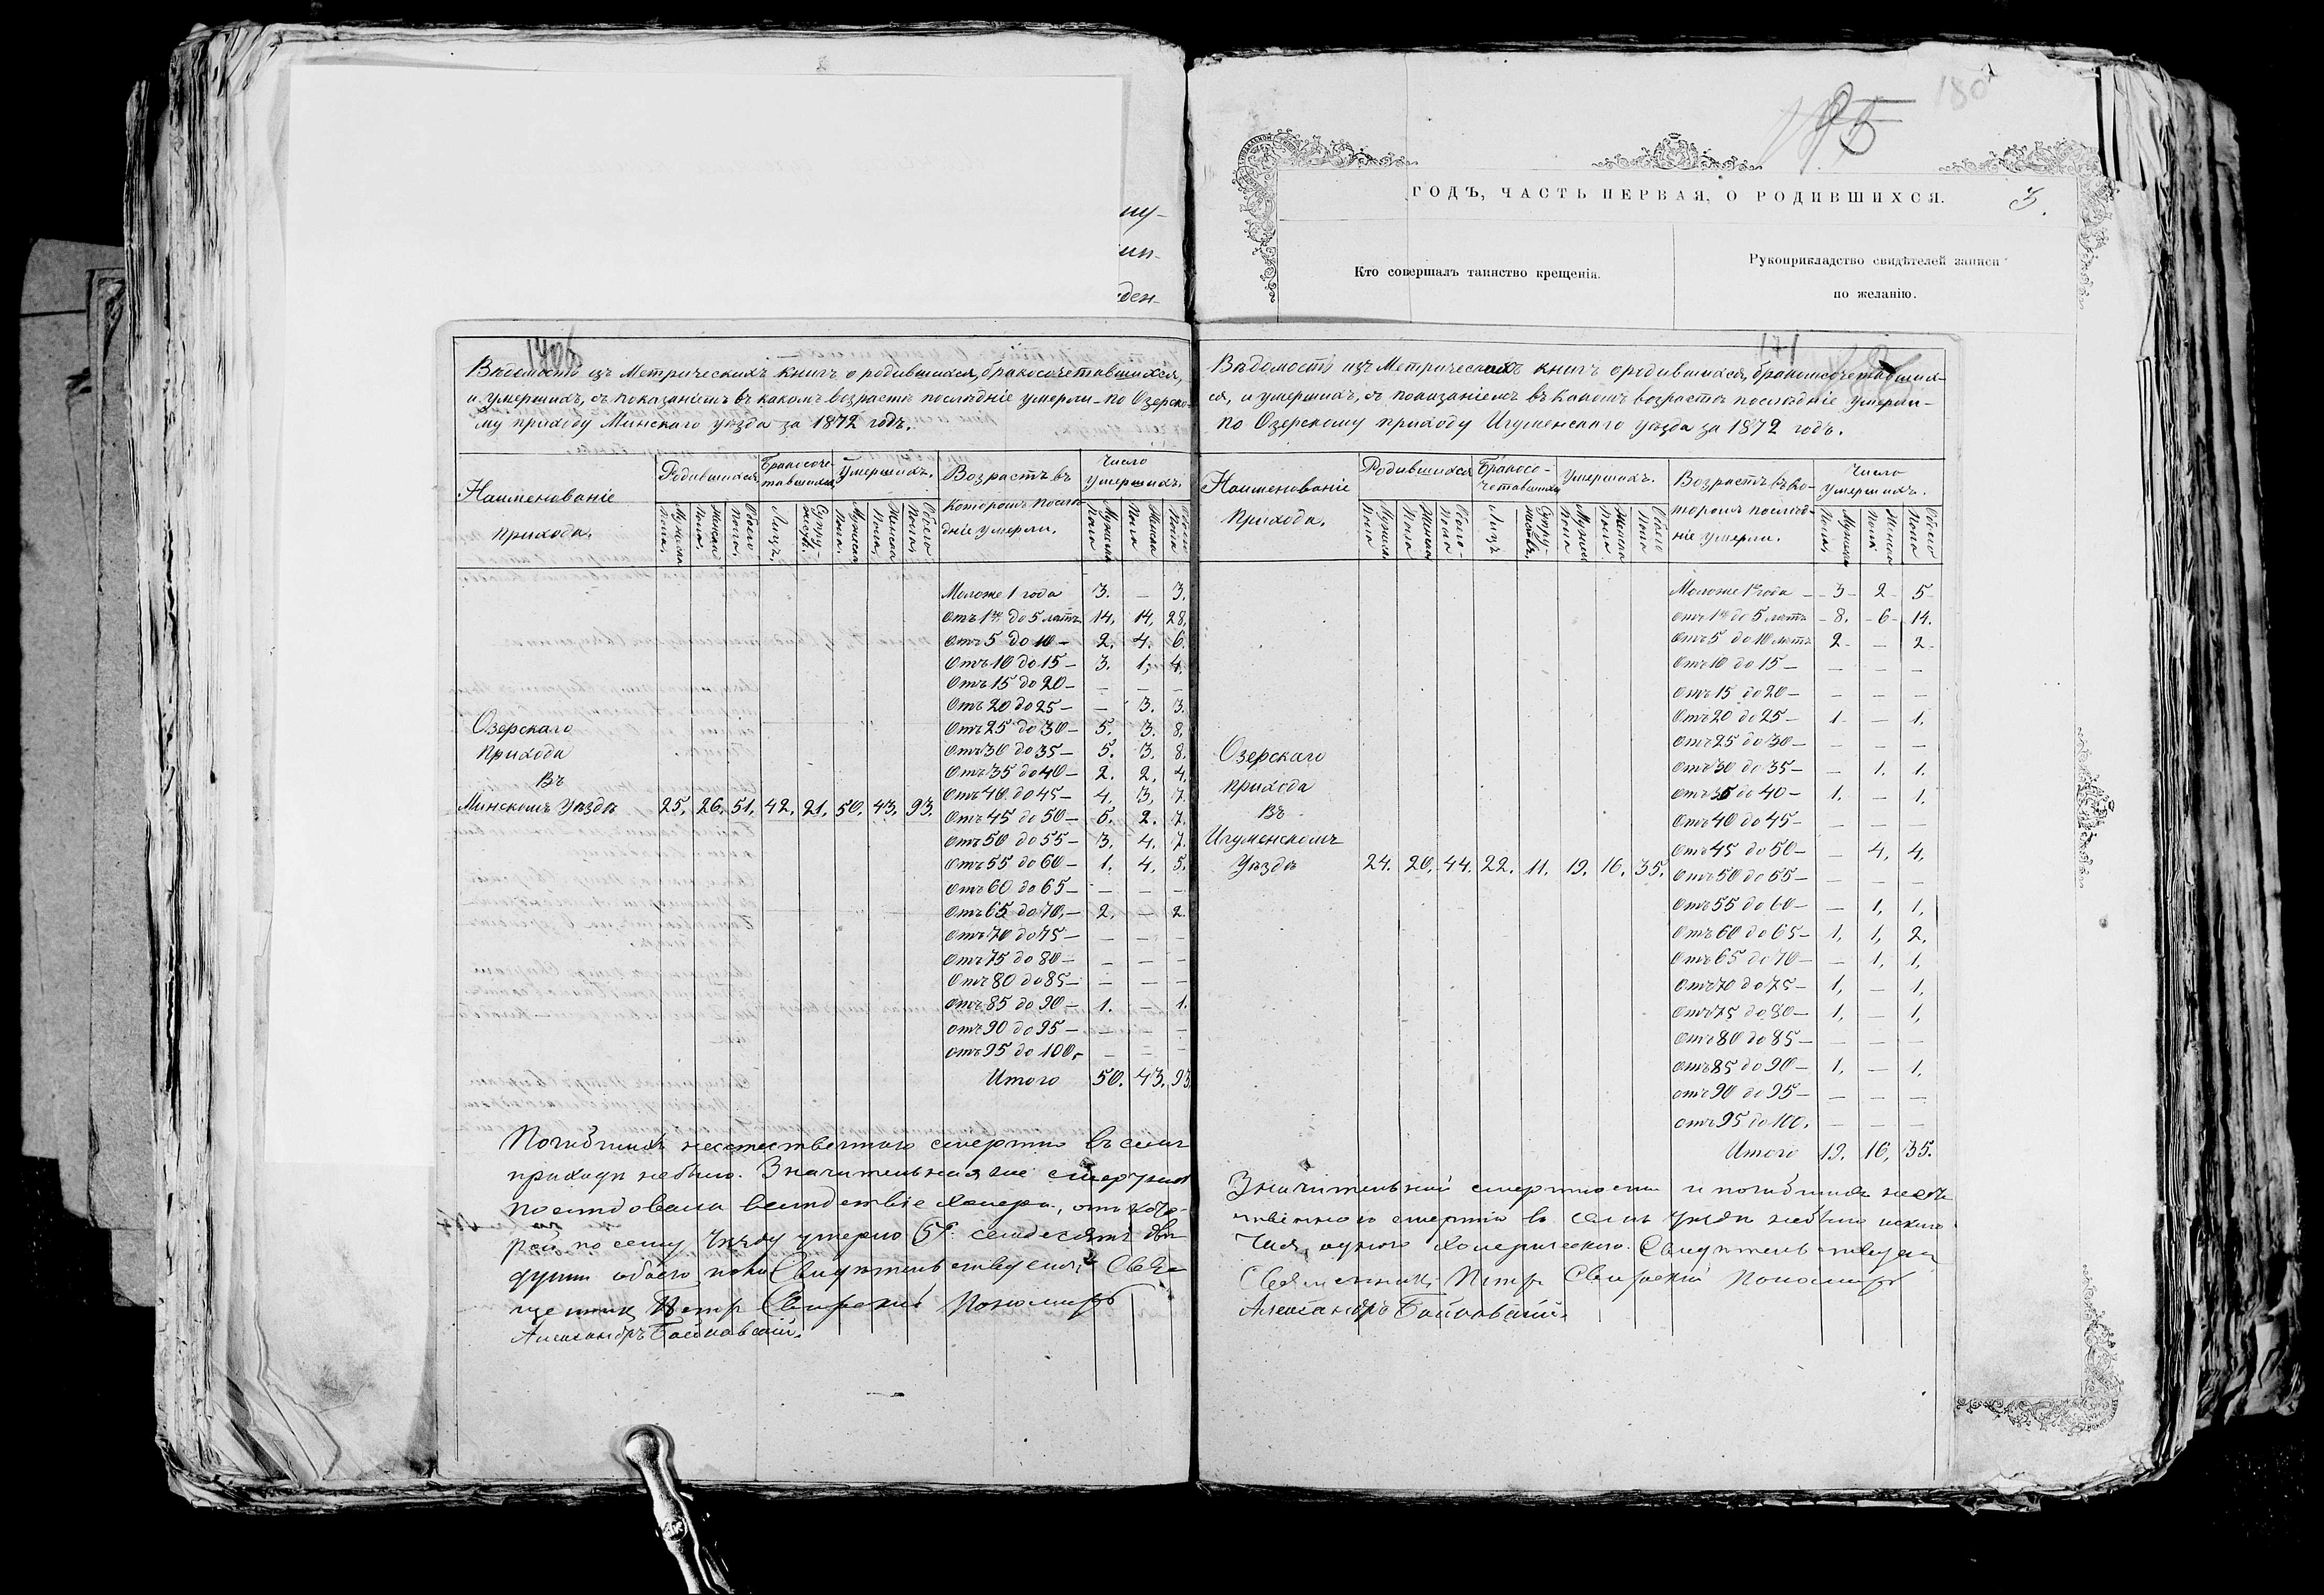 ну-
ден-
1406
Вѣдомость изъ Метрическихъ книгъ о родившихся, бракосочетавшихся,
и умершихъ, съ показаніемъ въ какомъ возрастѣ послѣдніе умерли - по Озерско-
му приходу Минскаго уѣзда за 1872 годъ.
Наименованіе прихода.
Родившихся
Бракосоче-
тавшихся
Умершихъ.
Возрастъ въ
которомъ послѣ-
дніе умерли.
Число
умершихъ.
Мужска Пола.
Женска Пола.
Обоего Пола.
Лицъ.
Супру-
жествъ.
Мужеска Пола.
Женска Пола.
Обоего Пола.
Мужеска Пола
Женска Пола
Обоего Пола
Моложе 1 года 3. — 3.
Отъ 1го до 5 лѣтъ 14, 14, 28,
Отъ 5 до 10 — 2. 4. 6.
Отъ 10 до 15 — 3. 1, 4,
Отъ 15 до 20 — — — —
Отъ 20 до 25 — — 3. 3.
Отъ 25 до 30 — 5. 3. 8,
Отъ 30 до 35 — 5. 3. 8.
Отъ 35 до 40 — 2. 2, 4,
Отъ 40 до 45 — 4. 3, 7.
Отъ 45 до 50 — 5. 2. 7.
Отъ 50 до 55 — 3. 4. 7.
Отъ 55 до 60 — 1. 4, 5.
Отъ 60 до 65 — — — —
Отъ 65 до 70, — 2. — 2.
Отъ 70 до 75 — — — —
Отъ 75 до 80 — — — —
Отъ 80 до 85 — — — —
отъ 85 до 90 — 1. — 1.
отъ 90 до 95 — — — —
отъ 95 до 100, — — —
Итого 50. 43. 93
Озерскаго
Прихода
Въ
Минскомъ Уѣздѣ 25, 26, 51, 42, 21, 50, 43, 93.
Погибшихъ неестественною смертію въ семъ
приходѣ небыло. Значительная же смертность
последовала вслѣдствіе холеры, отъ кото-
рой по сему уѣзду умерло семдесятъ двѣ
души обоего пола Свидѣтельствуемъ: Свя-
щенникъ Петръ Свирскій Пономарь
Александръ
185
180
ГОДЪ, ЧАСТЬ ПЕРВАЯ, О РОДИВШИХСЯ.
3.
Кто совершалъ таинство крещенія.
Рукоприкладство свидѣтелей записи
по желанію.
171
Вѣдомость изъ Метрическихъ книгъ о родившихся, бракосочетавших-
ся, и умершихъ, съ показаніемъ въ какомъ возрастѣ послѣдніе умерли —
по Озерскому приходу Игуменскаго уѣзда за 1872 годъ.
Наименованіе
Прихода.
Родившихся
Бракосо-
четавшихся
Умершихъ.
Возрастъ въ ко-
торомъ послѣд-
ніе умерли.
Число
умершихъ.
Мужеска Пола
Женска Пола
Обоего Пола
Лицъ
Супру-
жествъ.
Мужеска Пола
Женска Пола
Обоего Пола
Мужеска Пола.
Женска Пола
Обоего Пола
Моложе 1го года — 3 - 2 - 5
отъ 1го до 5 лѣтъ — 8. - 6 - 14.
Отъ 5 до 10 лѣтъ 2 — 2
Отъ 10 до 15 — — — —
Отъ 15 до 20 — — — —
Отъ 20 до 25 — 1. — 1.
Отъ 25 до 30 — — — —
Отъ 30 до 35 — — 1. 1.
Отъ 35 до 40 — 1. — 1,
Отъ 40 до 45 — — — —
Отъ 45 до 50 — — 4, 4,
Отъ 50 до 55 — — — —
Отъ 55 до 60 — — 1, 1,
Отъ 60 до 65 — 1, 1, 2,
Отъ 65 до 70 — — 1, 1,
Отъ 70 до 75 — 1, — 1,
Отъ 75 до 80 — 1, — 1,
Отъ 80 до 85 — — — —
отъ 85 до 90 — 1, — 1,
отъ 90 до 95 — — — —
отъ 95 до 100. — — —
Итого 19. 16, 35.
Озерскаго
прихода
Въ
Игуменскомъ
Уѣздѣ 24. 20, 44. 22. 11. 19. 16. 35.
Значительной смертности и погибшихъ неесте-
ственною смертію въ семъ уѣздѣ небыло исклю-
чая одного холерическаго. Свидѣтельствуемъ
Священникъ Петръ Свирскій Пономарь
Александръ